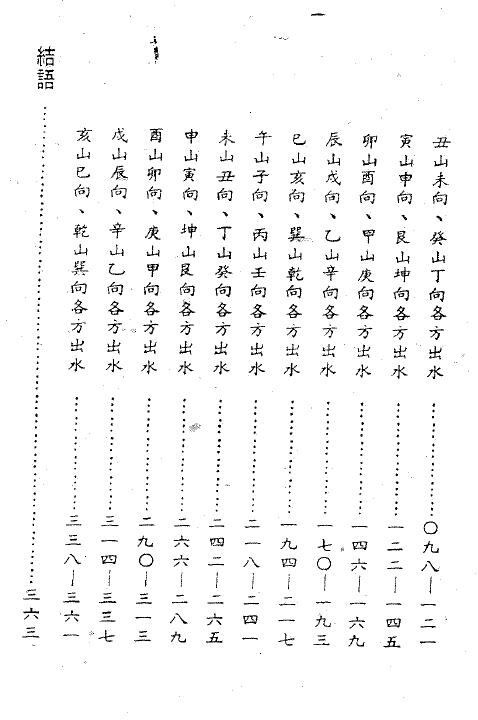 丑山未向、癸山丁向各方出水……〇九八—一二一
寅山申向、艮山坤向各方出水……一二二—一四五
卯山酉向、甲山庚向各方出水……一四六—一六九
辰山戌向、乙山辛向各方出水……一七〇—一九三
巳山亥向、巽山乾向各方出水……一九四—二一七
午山子向、丙山壬向各方出水……二一八—二四一
未山丑向、丁山癸向各方出水……二四二—二六五
申山寅向、坤山艮向各方出水……二六六—二八九
酉山卯向、庚山甲向各方出水……二九〇—三一三
戌山辰向、辛山乙向各方出水……三一四—三三七
亥山巳向、乾山巽向各方出水……三三八—三六一
結語……三六三